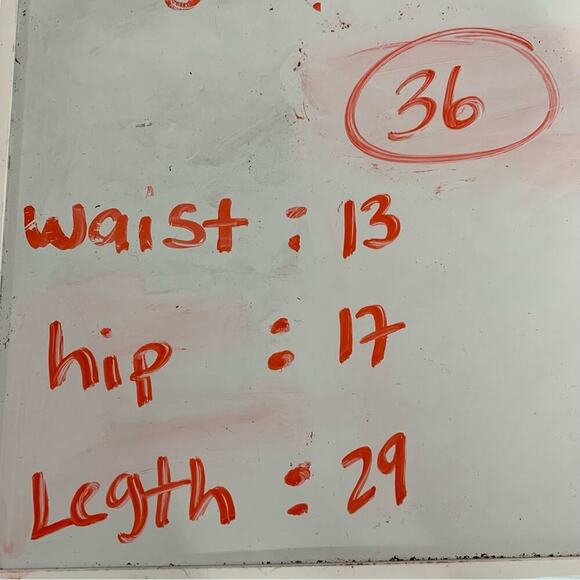 36
waist : 13
hip : 17
Legth : 29